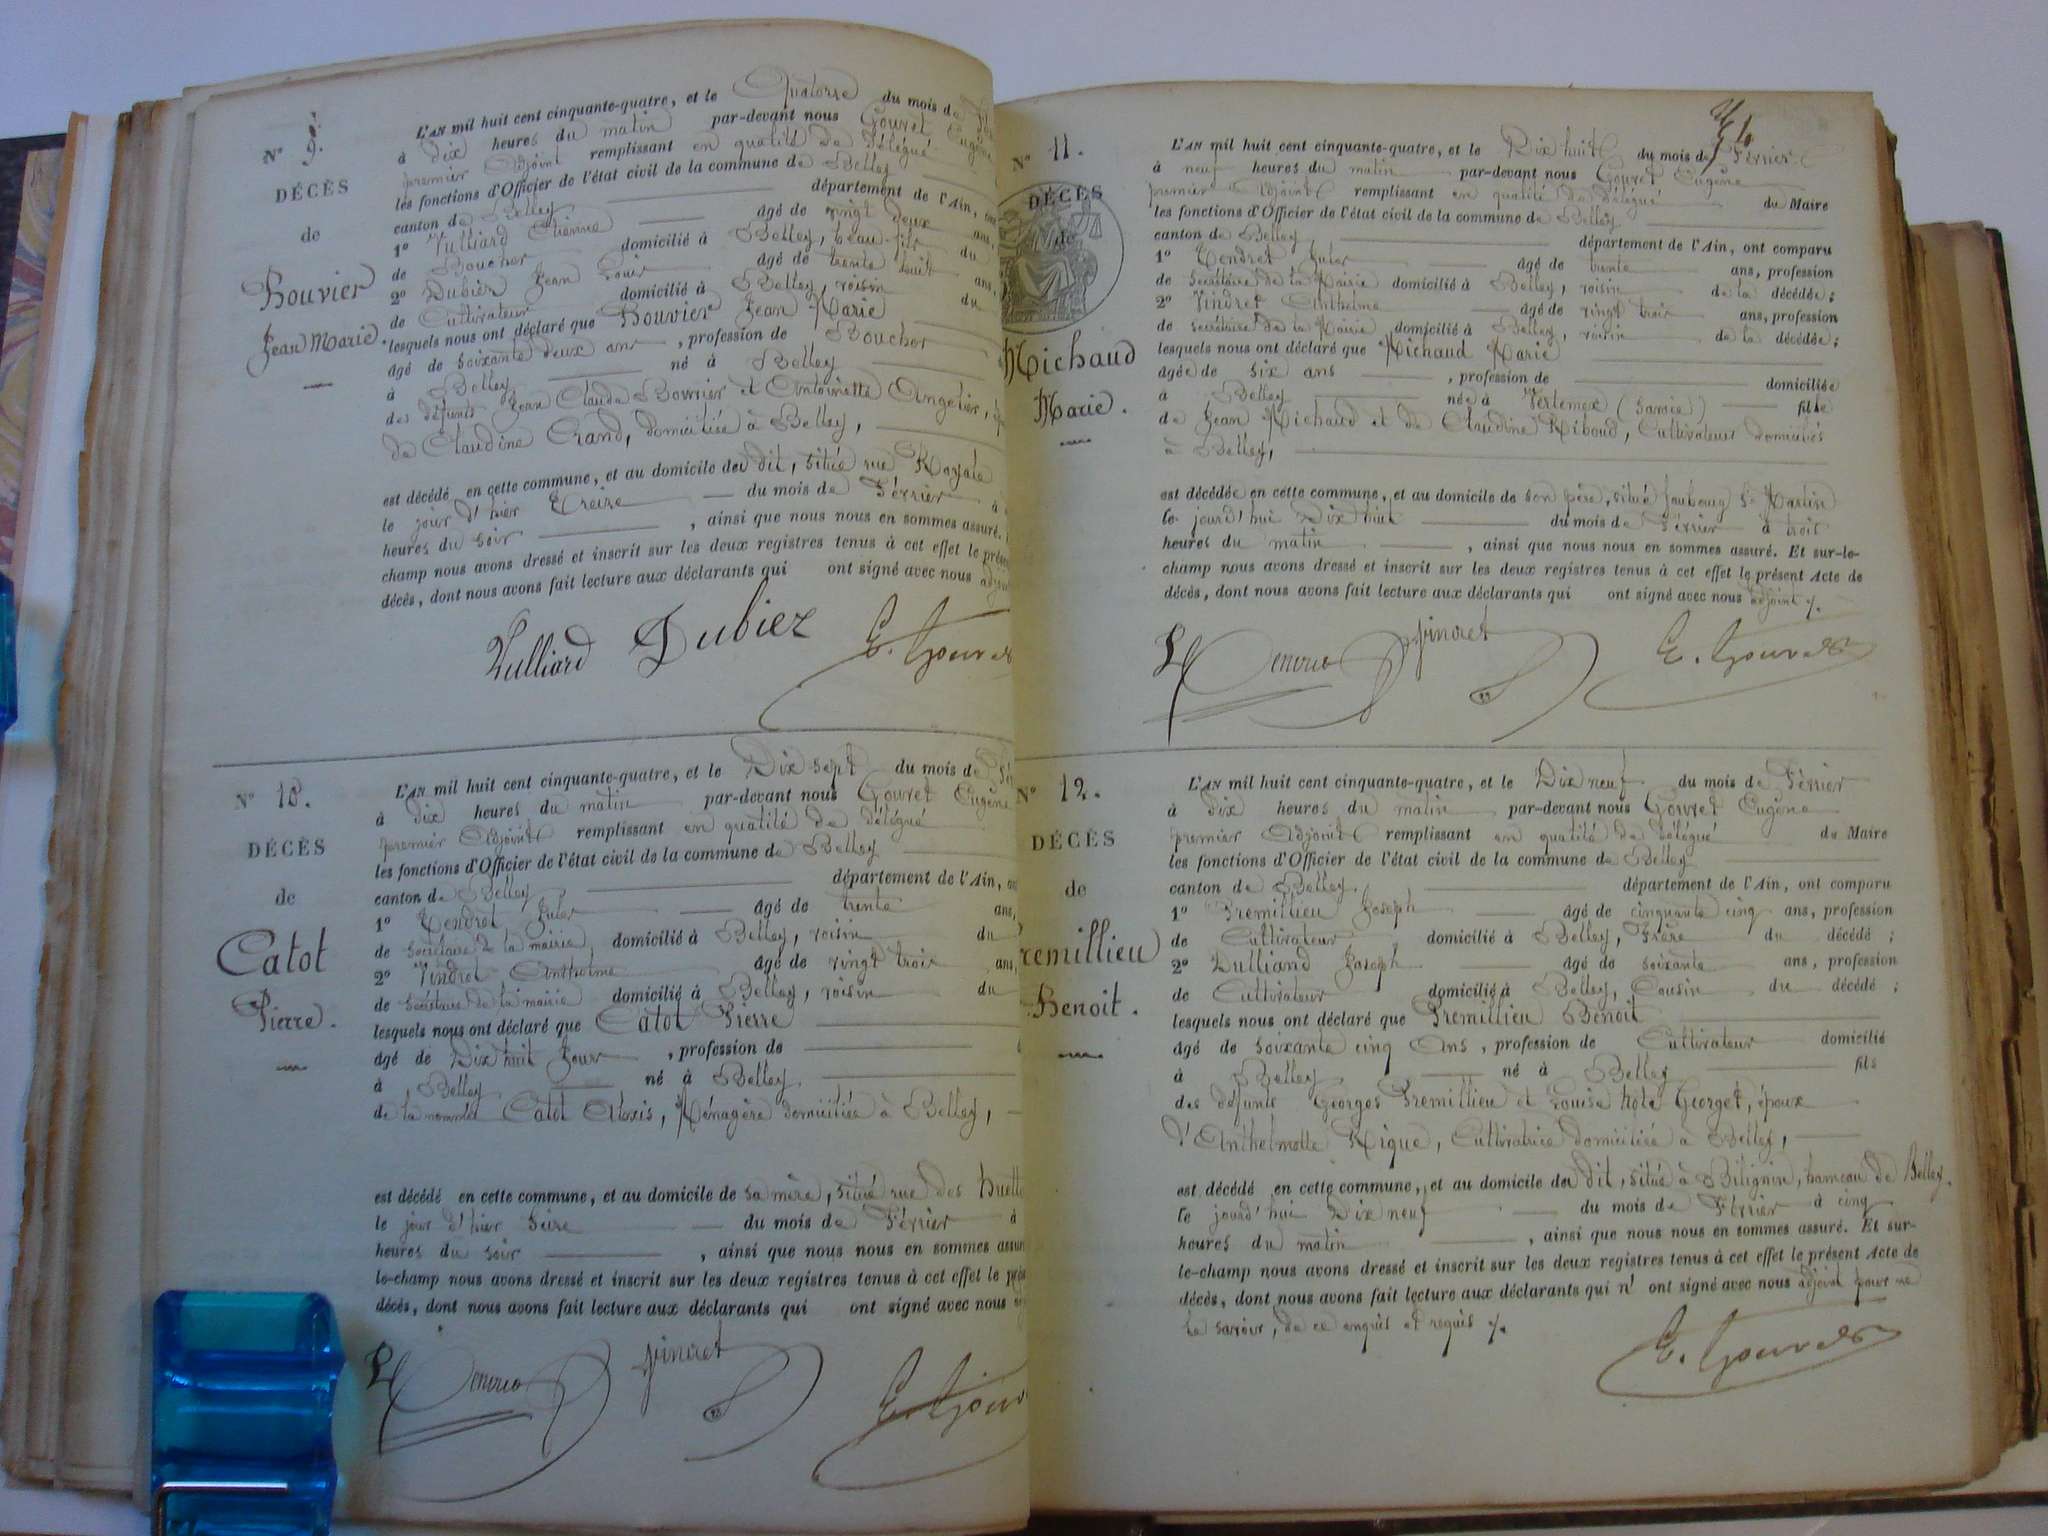 N° 9.
DÉCÈS
de
Bouvier
Jean Marie.
L'AN mil huit cent cinquante-quatre, et le Quatorze du mois de
à Dix heures du matin par-devant nous Gouvret Eugène
premier Adjoint remplissant en qualité de Délégué
les fonctions d'Officier de l'état civil de la commune de Belley
canton de Belley département de l'Ain, ont
1° Vulliard Etienne âgé de vingt deux ans,
de Boucher domicilié à Belley, beau-fils du
2° Dubiez Jean Louis âgé de trente huit ans,
de Cultivateur domicilié à Belley, voisin du
lesquels nous ont déclaré que Bouvier Jean Marie
âgé de soixante deux ans, profession de Boucher
à Belley né à Belley
des défunts Jean Claude Bouvier et Antoinette Angelier,
de Claudine Crand, domiciliée à Belley,
est décédé en cette commune, et au domicile du dit, situé rue Royale
le jour d'hier Treize du mois de Février à
heures du soir, ainsi que nous nous en sommes assuré.
champ nous avons dressé et inscrit sur les deux registres tenus à cet effet le présent
décès, dont nous avons fait lecture aux déclarants qui ont signé avec nous adjoint
Vulliard Dubiez E. Gouvret
N° 10.
DÉCÈS
de
Catot
Pierre.
L'AN mil huit cent cinquante-quatre, et le Dix sept du mois de
à Dix heures du matin par-devant nous Gouvret Eugène
premier Adjoint remplissant en qualité de délégué
les fonctions d'Officier de l'état civil de la commune de Belley
canton de Belley département de l'Ain, ont
1° Tendret Jules âgé de trente ans,
de Secrétaire de la mairie domicilié à Belley, voisin du
2° Vindret Anthelme âgé de vingt trois ans,
de Secrétaire de la mairie domicilié à Belley, voisin du
lesquels nous ont déclaré que Catot Pierre
âgé de Dix huit Jours, profession de
à Belley né à Belley
de la nommée Catot Alexis, Ménagère domiciliée à Belley,
est décédé en cette commune, et au domicile de sa mère, situé rue des
le jour d'hier Seize du mois de Février à
heures du soir, ainsi que nous nous en sommes assuré
le-champ nous avons dressé et inscrit sur les deux registres tenus à cet effet le
décès, dont nous avons fait lecture aux déclarants qui ont signé avec nous
Tendret Vindret E. Gouvret
N° 11.
DÉCÈS
de
Michaud
Marie.
L'AN mil huit cent cinquante-quatre, et le Dix huit du mois de Février
à neuf heures du matin par-devant nous Gouvret Eugène
premier Adjoint remplissant en qualité de délégué du Maire
les fonctions d'Officier de l'état civil de la commune de Belley
canton de Belley département de l'Ain, ont comparu
1° Tendret Jules âgé de trente ans, profession
de Secrétaire de la Mairie domicilié à Belley, voisin de la décédée;
2° Vindret Anthelme âgé de vingt trois ans, profession
de Secrétaire de la Mairie domicilié à Belley, voisin de la décédée;
lesquels nous ont déclaré que Michaud Marie
âgée de six ans, profession de domiciliée
à Belley née à Vertemex (Savoie) fille
de Jean Michaud et de Claudine Riboud, Cultivateurs domiciliés
à Belley,
est décédée en cette commune, et au domicile de son père, situé faubourg St Martin
le jourd'hui Dix huit du mois de Février à trois
heures du matin, ainsi que nous nous en sommes assuré. Et sur-le-
champ nous avons dressé et inscrit sur les deux registres tenus à cet effet le présent Acte de
décès, dont nous avons fait lecture aux déclarants qui ont signé avec nous adjoint
Tendret Vindret E. Gouvret
N° 12.
DÉCÈS
de
remillieu
Benoit.
L'AN mil huit cent cinquante-quatre, et le Dix neuf du mois de Février
à Dix heures du matin par-devant nous Gouvret Eugène
premier Adjoint remplissant en qualité de délégué du Maire
les fonctions d'Officier de l'état civil de la commune de Belley
canton de Belley. département de l'Ain, ont comparu
1° Premillieu Joseph âgé de cinquante cinq ans, profession
de Cultivateur domicilié à Belley, Frère du décédé;
2° Dulliand Joseph âgé de soixante ans, profession
de Cultivateur domicilié à Belley, Cousin du décédé;
lesquels nous ont déclaré que Premillieu Benoit
âgé de soixante cinq Ans, profession de Cultivateur domicilié
à Belley né à Belley fils
des défunts Georges Premillieu et Louise hôte Georget, époux
d'Anthelmette Rigue, Cultivatrice domiciliée à Belley,
est décédé en cette commune, et au domicile du dit, situé à Bilignin, hameau de Belley.
le jourd'hui Dix neuf du mois de Février à cinq
heures du matin, ainsi que nous nous en sommes assuré. Et sur-
le-champ nous avons dressé et inscrit sur les deux registres tenus à cet effet le présent Acte de
décès, dont nous avons fait lecture aux déclarants qui n'ont signé avec nous adjoint pour ne
le savoir, de ce enquis et requis
E. Gouvret